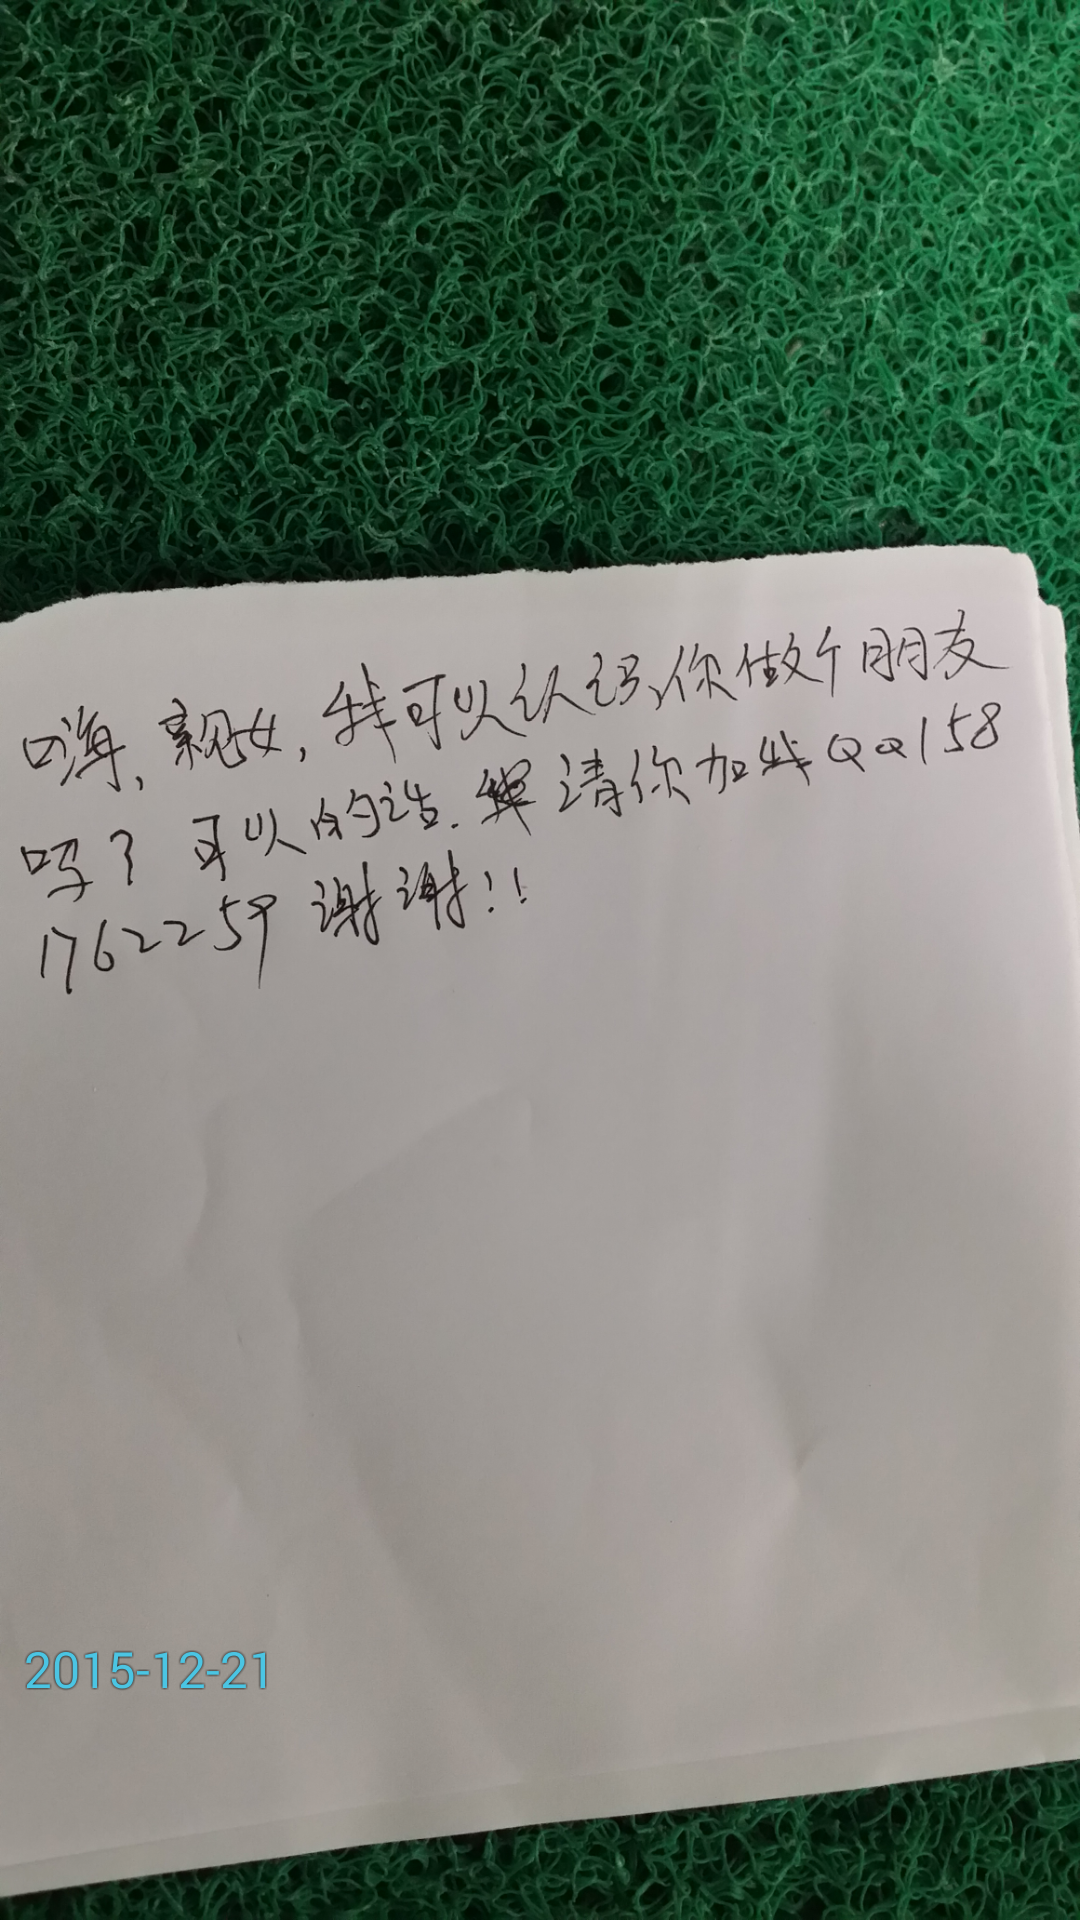 嗨,亲女,我可以认识你做个朋友
吗?可以的话.请你加我QQ158
1762259谢谢!!
2015-12-21